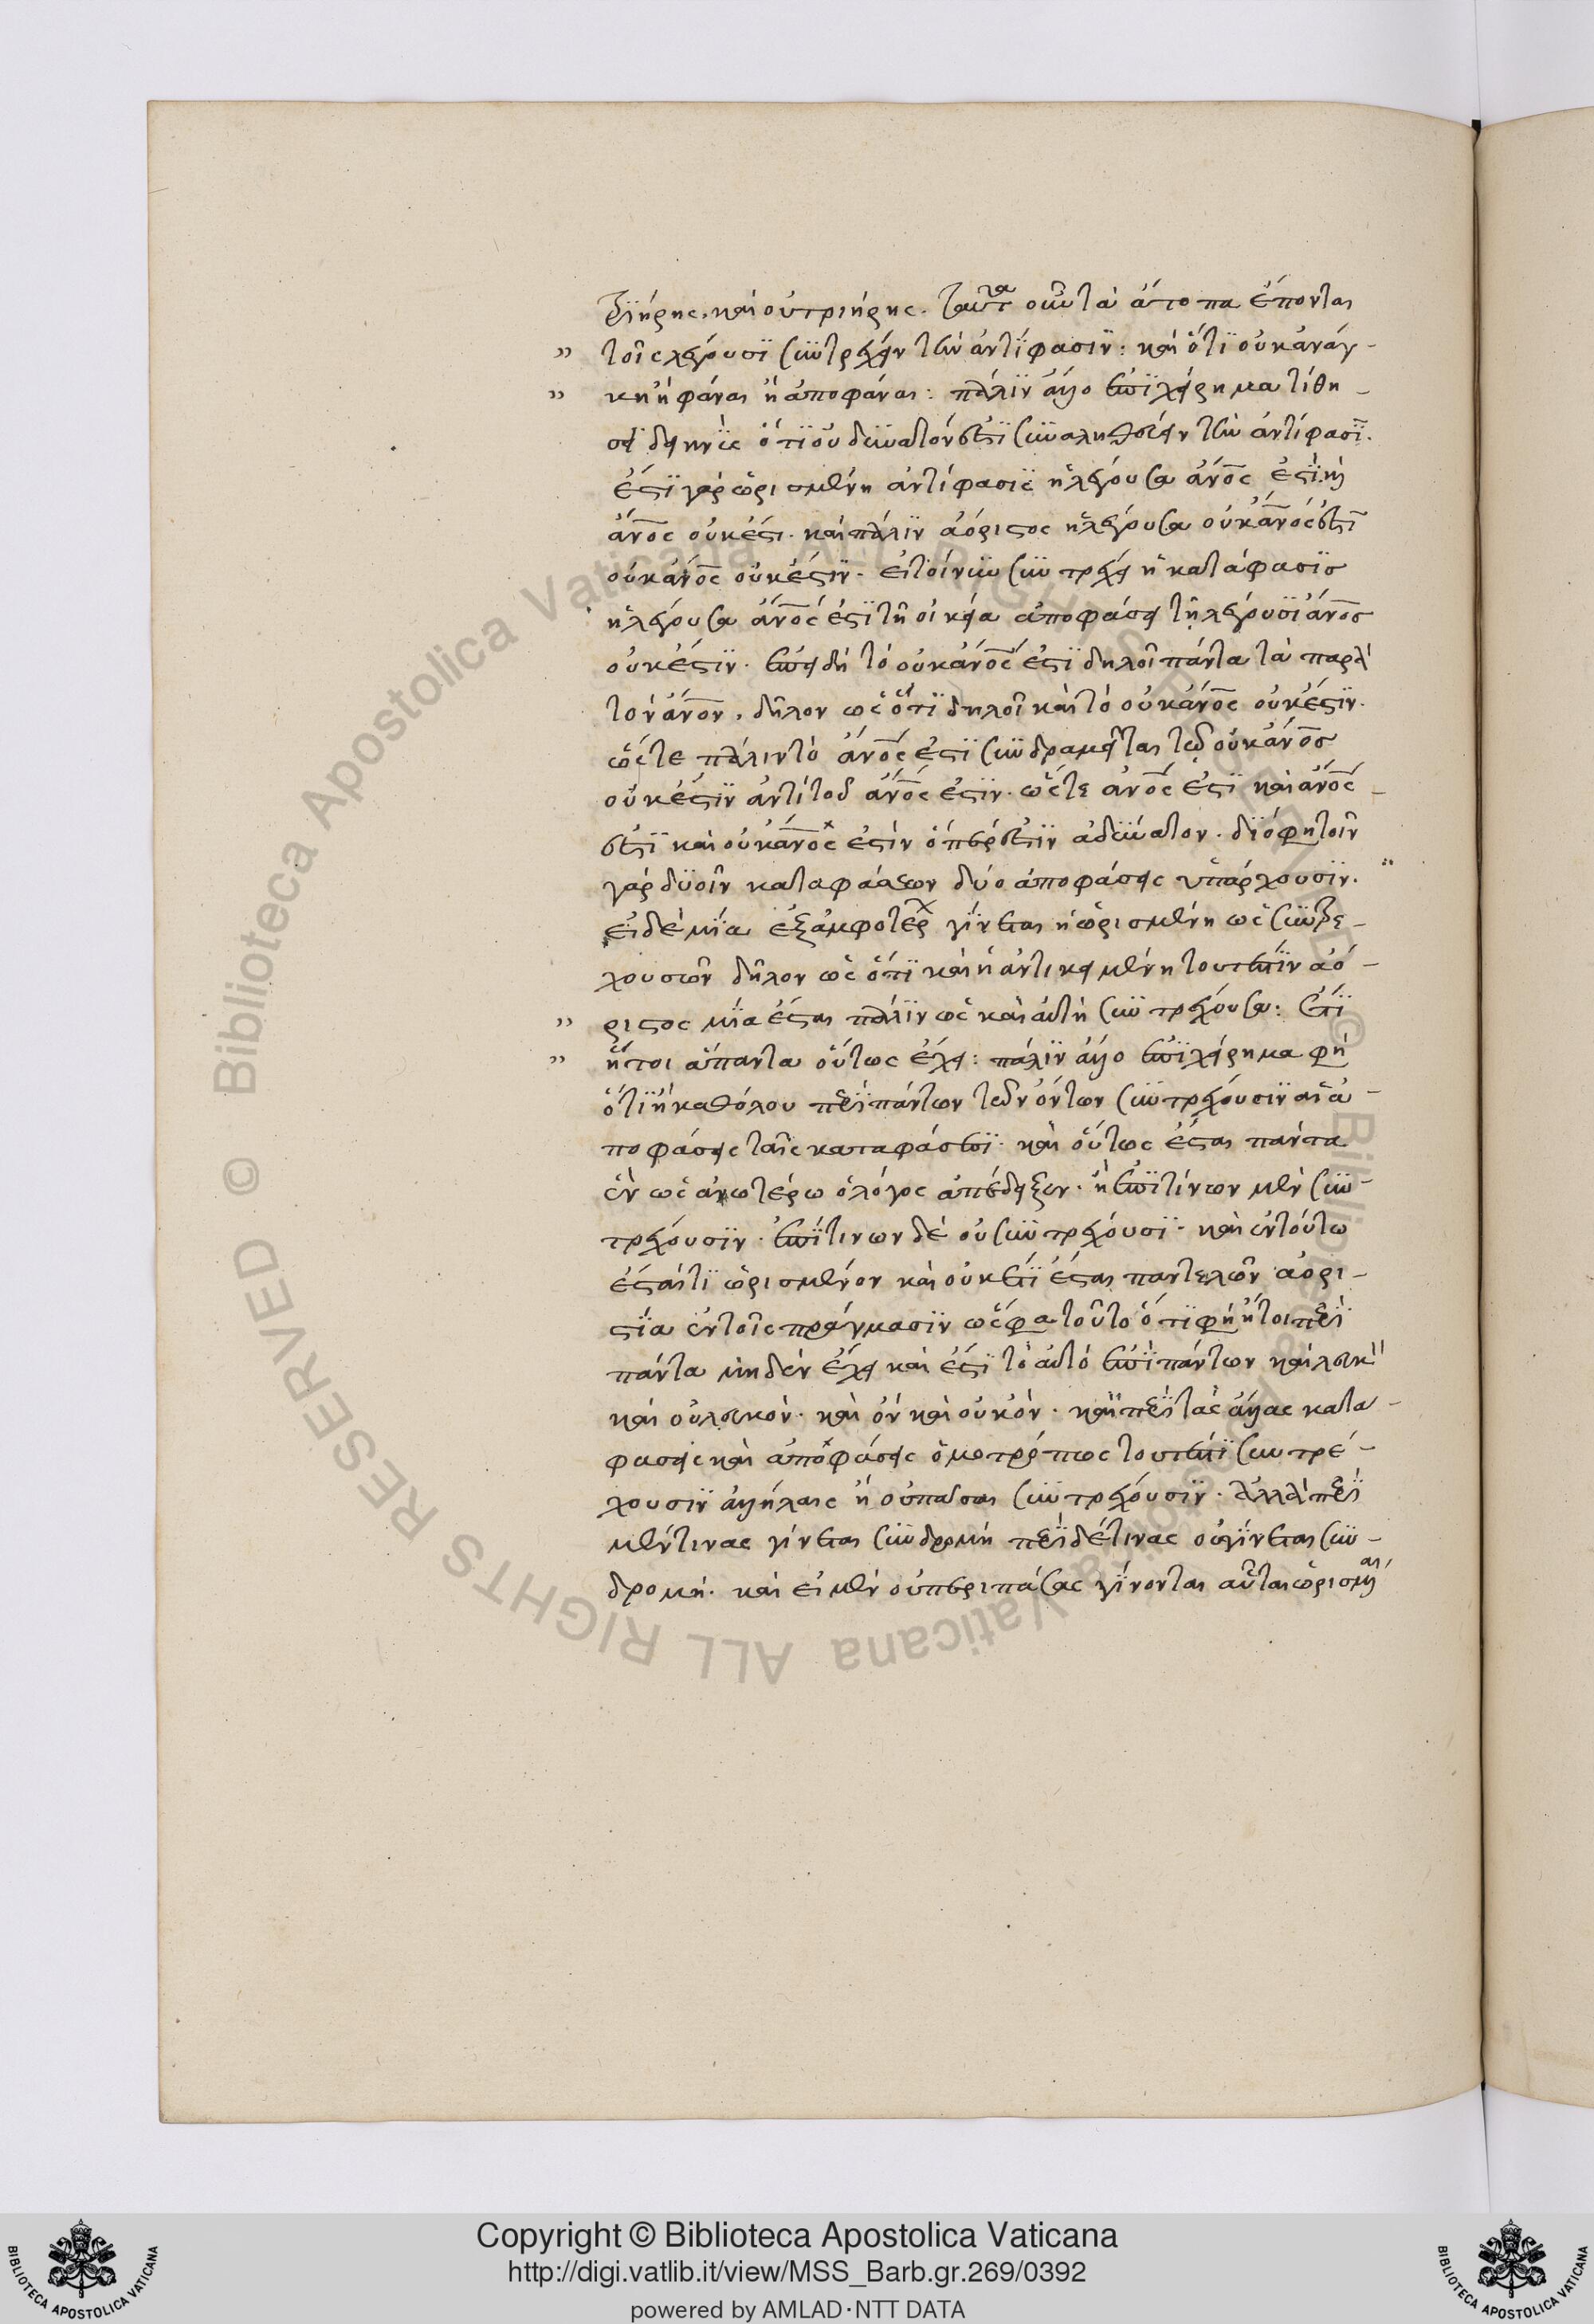 τριήρης. καὶ οὐ τριήρης. ταῦτα οὖν τὰ ἄτοπα ἕπονται
" τοῖς λέγουσι συντρέχειν τὴν ἀντίφασιν: καὶ ὅτι οὐκ ἀνάγ-
" κη ἢ φάναι ἢ ἀποφάναι: πάλιν ἄλλο ἐπιχείρημα τίθη-
σι δεικνὺς ὅτι οὐ δυνατόν ἐστι συναληθεύειν τὴν ἀντίφασιν.
ἔστι γὰρ ὡρισμένη ἀντίφασις ἡ λέγουσα ἄνος ἐστὶ καὶ
ἄνος οὐκ ἔστι. καὶ πάλιν ἀόριστος ἡ λέγουσα οὐκ ἄνος ἐστὶ
οὐκ ἄνος οὐκ ἔστιν. εἰ τοίνυν συντρέχει ἡ κατάφασις
ἡ λέγουσα ἄνος ἐστὶ τῆ οἰκεία ἀποφάσει τῆ λεγούσι ἄνος
οὐκ ἔστιν. ἐπειδὴ τὸ οὐκ ἄνος ἐστὶ δηλοῖ πάντα τὰ παρὰ
τὸν ἄνον, δῆλον ὡς ὅτι δηλοῖ καὶ τὸ οὐκ ἄνος οὐκ ἔστιν.
ὥστε πάλιν τὸ ἄνος ἐστὶ συνδραμεῖται τῷ οὐκ ἄνος
οὐκ ἔστιν ἀντὶ τοῦ ἄνος ἐστιν. ὥστε ἄνος ἐστὶ καὶ ἄνος
ἐστὶ καὶ οὐκ ἄνος ἐστὶν ὅπερ ἐστὶν ἀδύνατον. διό φη τοῖν
γὰρ δυοῖν καταφάσεων δύο ἀποφάσεις ὑπάρχουσιν.
εἰ δὲ μία ἐξ ἀμφοτέρ γίνεται ἡ ὡρισμένη ὡς συντρε-
χουσῶν δῆλον ὡς ὅτι καὶ ἡ ἀντικειμένη τουτέστιν ἀό-
" ριστος μία ἔσται πάλιν ὡς καὶ αὐτὴ συντρέχουσα: ἔτι
" ἤτοι ἅπαντα οὕτως ἔχει: πάλιν ἄλλο ἐπιχείρημα φη
ὅτι ἢ καθόλου περὶ πάντων τῶν ὄντων συντρέχουσιν αἱ ἀ-
ποφάσεις ταῖς καταφάσεσι. καὶ οὕτως ἔσται πάντα
ἓν ὡς ἀνωτέρω ὁ λόγος ἀπέδειξεν. ἢ ἐπὶ τίνων μὲν συν-
τρέχουσιν. ἐπὶ τινων δὲ οὐ συντρέχουσι. καὶ ἐν τούτω
ἔσται τι ὡρισμένον καὶ οὐκέτι ἔσται παντελῶν ἀορι-
στία ἐν τοῖς πράγμασιν ὡς ἔφα τοῦτο ὅτι φη ἤτοι περὶ
πάντα μηδὲν ἔχει καὶ ἔστι τὸ αὐτό ἐπὶ πάντων καὶ λευκὸ
καὶ οὐ λευκόν. καὶ ὂν καὶ οὐκ ὄν. καὶ περὶ τὰς ἄλλας κατα-
φασεις καὶ ἀποφάσεις ὁμοτρόπως τουτέστι συντρέ-
χουσιν ἀλλήλαις ἢ οὐ πᾶσαι συντρέχουσιν. ἀλλὰ περὶ
μέν τινας γίνεται συνδρομή περὶ δέ τινας οὐ γίνεται συν-
δρομή. καὶ εἰ μὲν οὐ περὶ πάσας γίνονται αὗται ὡρισμέναι
Copyright © Biblioteca Apostolica Vaticana
http://digi.vatlib.it/view/MSS_Barb.gr.269/0392
powered by AMLAD·NTT DATA
BIBLIOTECA APOSTOLICA VATICANA
BIBLIOTECA APOSTOLICA VATICANA
© Biblioteca Apostolica Vaticana ALL RIGHTS RESERVED © Biblioteca Apostolica Vaticana ALL RIGHTS RESERVED